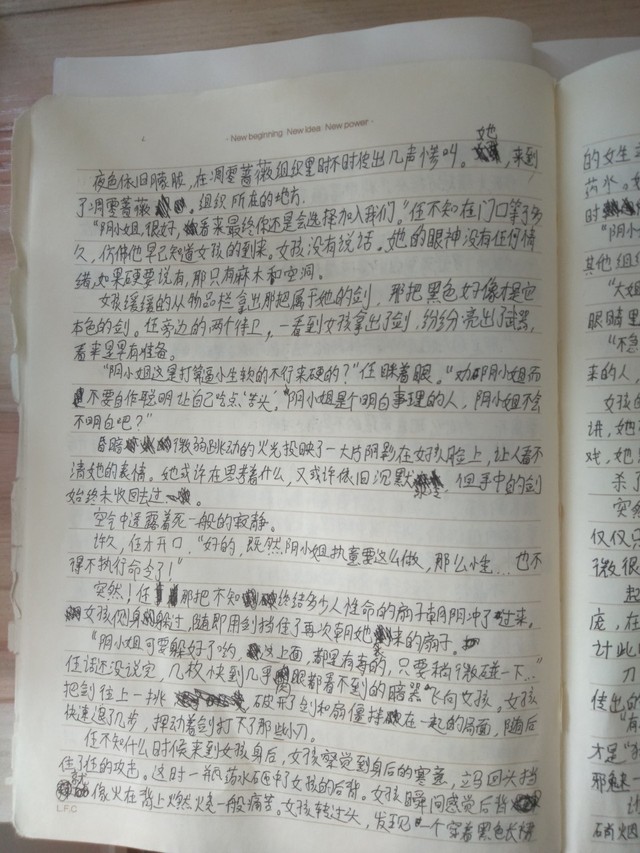 New beginning New Idea New power
夜色依旧朦胧,在凋零蔷薇组织里时不时传出几声惨叫。她,来到
了凋零蔷薇。组织所在的地方.
“阴小姐,很好,看来最终你还是会选择加入我们。”任不知在门口等了多
久,仿佛他早已知道女孩的到来。女孩没有说话。她的眼神没有任何情
绪,如果硬要说有,那只有麻木和空洞。
女孩缓缓的从物品栏拿出那把属于她的剑,那把黑色好像才是它
本色的剑。任旁边的两个侍卫,一看到女孩拿出了剑,纷纷亮出了武器,
看来是早有准备。
“阴小姐这是打算逼小生软的不行来硬的?”任眯着眼。“劝阴小姐而
不要自作聪明让自己吃点‘苦头’。”阴小姐是个明白事理的人,阴小姐不会
不明白吧?”
昏暗微弱跳动的火光投映了一大片阴影在女孩脸上,让人看不
清她的表情。她或许在思考着什么,又或许依旧沉默,但手中的剑
始终未收回去过。
空气中透露着死一般的寂静。
许久,任才开口,“好的,既然阴小姐执意要这么做,那么小生...也不
得不执行命令了!”
突然!任那把不知终结多少人性命的扇子朝阴冲了过来,
女孩侧身躲过,随即用剑挡住了再次朝她来的扇子。
“阴小姐可要躲好了哟,这上面,都是有毒的,只要稍微碰一下...”
任话还没说完,几枚快到几乎肉眼都看不到的暗器飞向女孩。女孩
把剑往上一挑,破开了剑和扇僵持在一起的局面,随后
快速退几步,挥动着剑打下了那些小刀。
任不知什么时候来到女孩身后,女孩察觉到身后的寒意,立马回头挡
住了任的攻击。这时一瓶药水砸中了女孩的后背。女孩瞬间感觉后背
就像火在背上燃烧一般痛苦。女孩转过头,发现一个穿着黑色长袍
L.F.C
的女生
药水。女
时
“阴小
其他组
“大姐
眼睛里
“不急
来的人,
女孩的
讲,她
戏,她
杀了
突然
仅仅只
微很
庞,在
计此
刀
传出的
“有
才是“
邪魅一